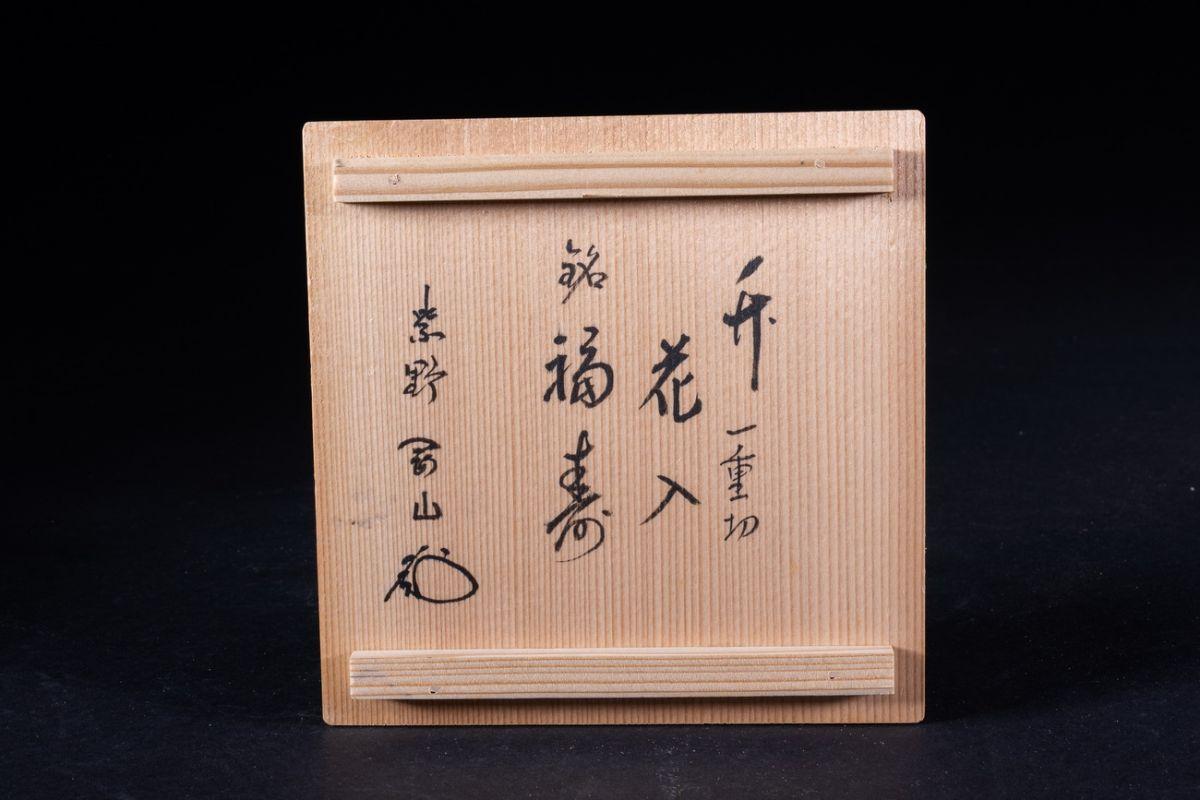 竹 一重切
花入
銘 福寿
紫野 剛山